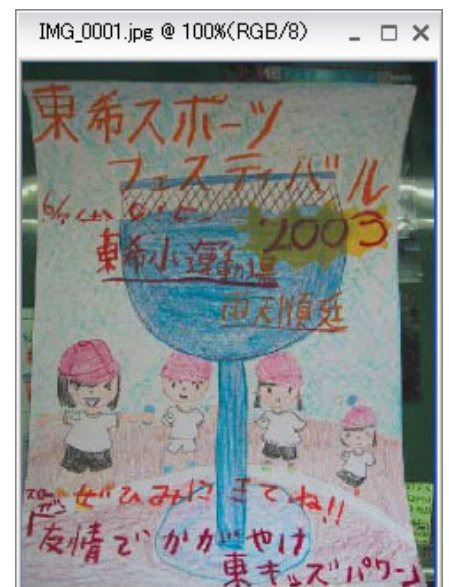 IMG_0001.jpg @ 100%(RGB/8)
東希スポーツ
フェスティバル
2003
東希小運動場
雨天順延
ぜひみにきてね!!
「友情でかがやけ
東キッズパワー」